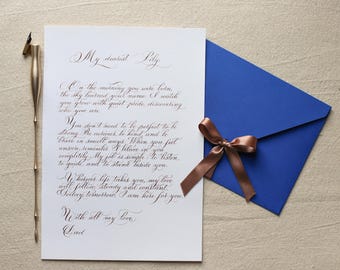 My dearest Lily,
On the morning you were born,
the sky learned your name. I watch
you grow with quiet pride, discovering
who you are.
You don't need to be perfect to be
strong. Be curious, be kind, and be
brave in small ways. When you feel
unseen, remember: I believe in you
completely. My job is simple: to listen,
to guide and to stand beside you.
Wherever life takes you, my love
will follow, steady and constant.
Today, tomorrow, I am here for you.
With all my love,
Dad